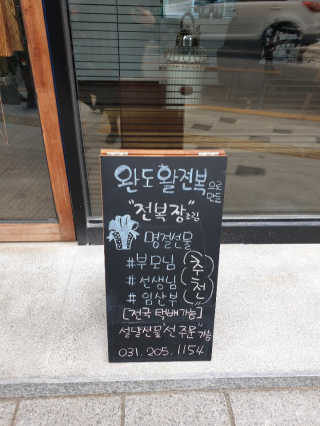 완도 활전복으로
만든
"전복장"조림
명절선물
#부모님
#선생님
#임산부
추천
[전국 택배가능]
설날선물"선 주문"가능
031. 205. 1154